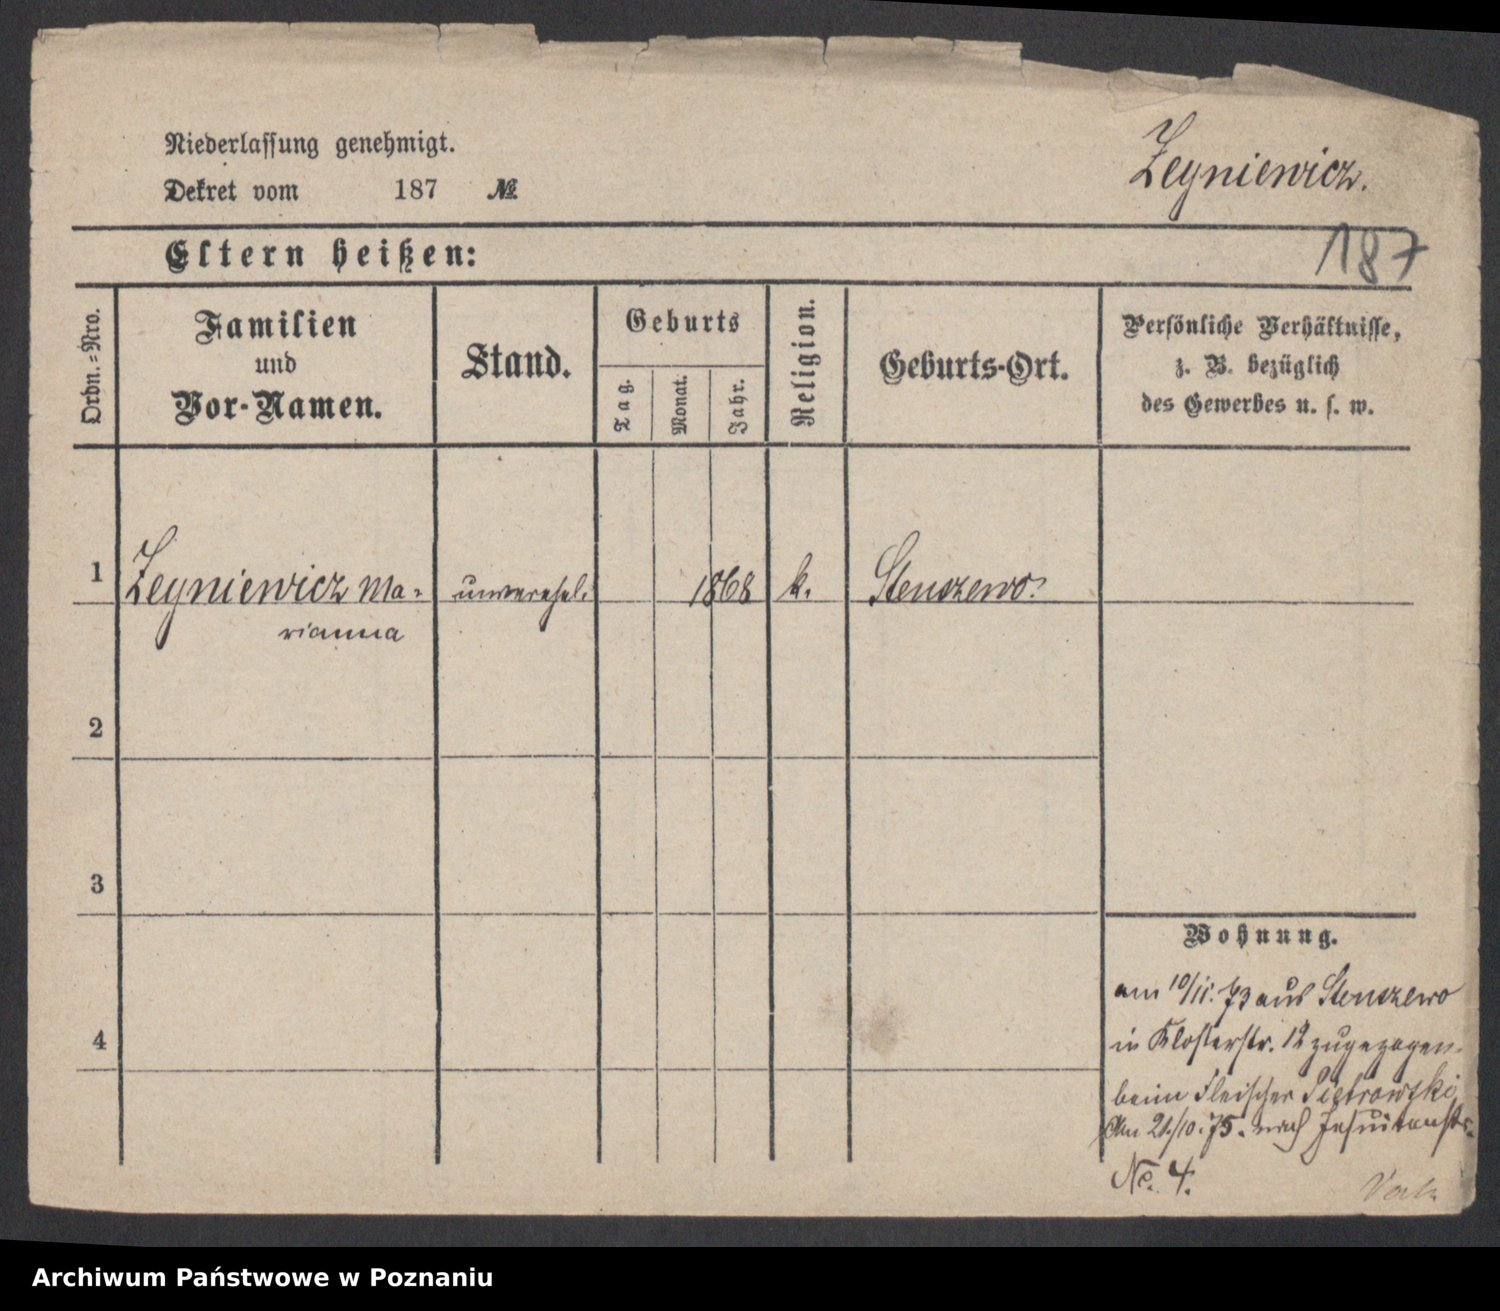 Niederlassung genehmigt.
Dekret vom 187 №
Zegniewicz.
187
Eltern heißen:
Ordn.=Nro.
Familien
und
Vor-Namen.
Stand.
Geburts
Tag.
Monat.
Jahr.
Religion.
Geburts-Ort.
Persönliche Verhältnisse,
z. B. bezüglich
des Gewerbes u. s. w.
1 Zegniewicz Ma= unverehel. 1868 k. Stenszewo.
rianna
2
3
4
Wohnung.
am 10/11. 73 aus Stenszewo
in Klosterstr. 12 zugezogen.
beim Fleischer Pietrowski
Am 21/10. 75. nach Jesuitenstr.
No. 4.
Archiwum Państwowe w Poznaniu